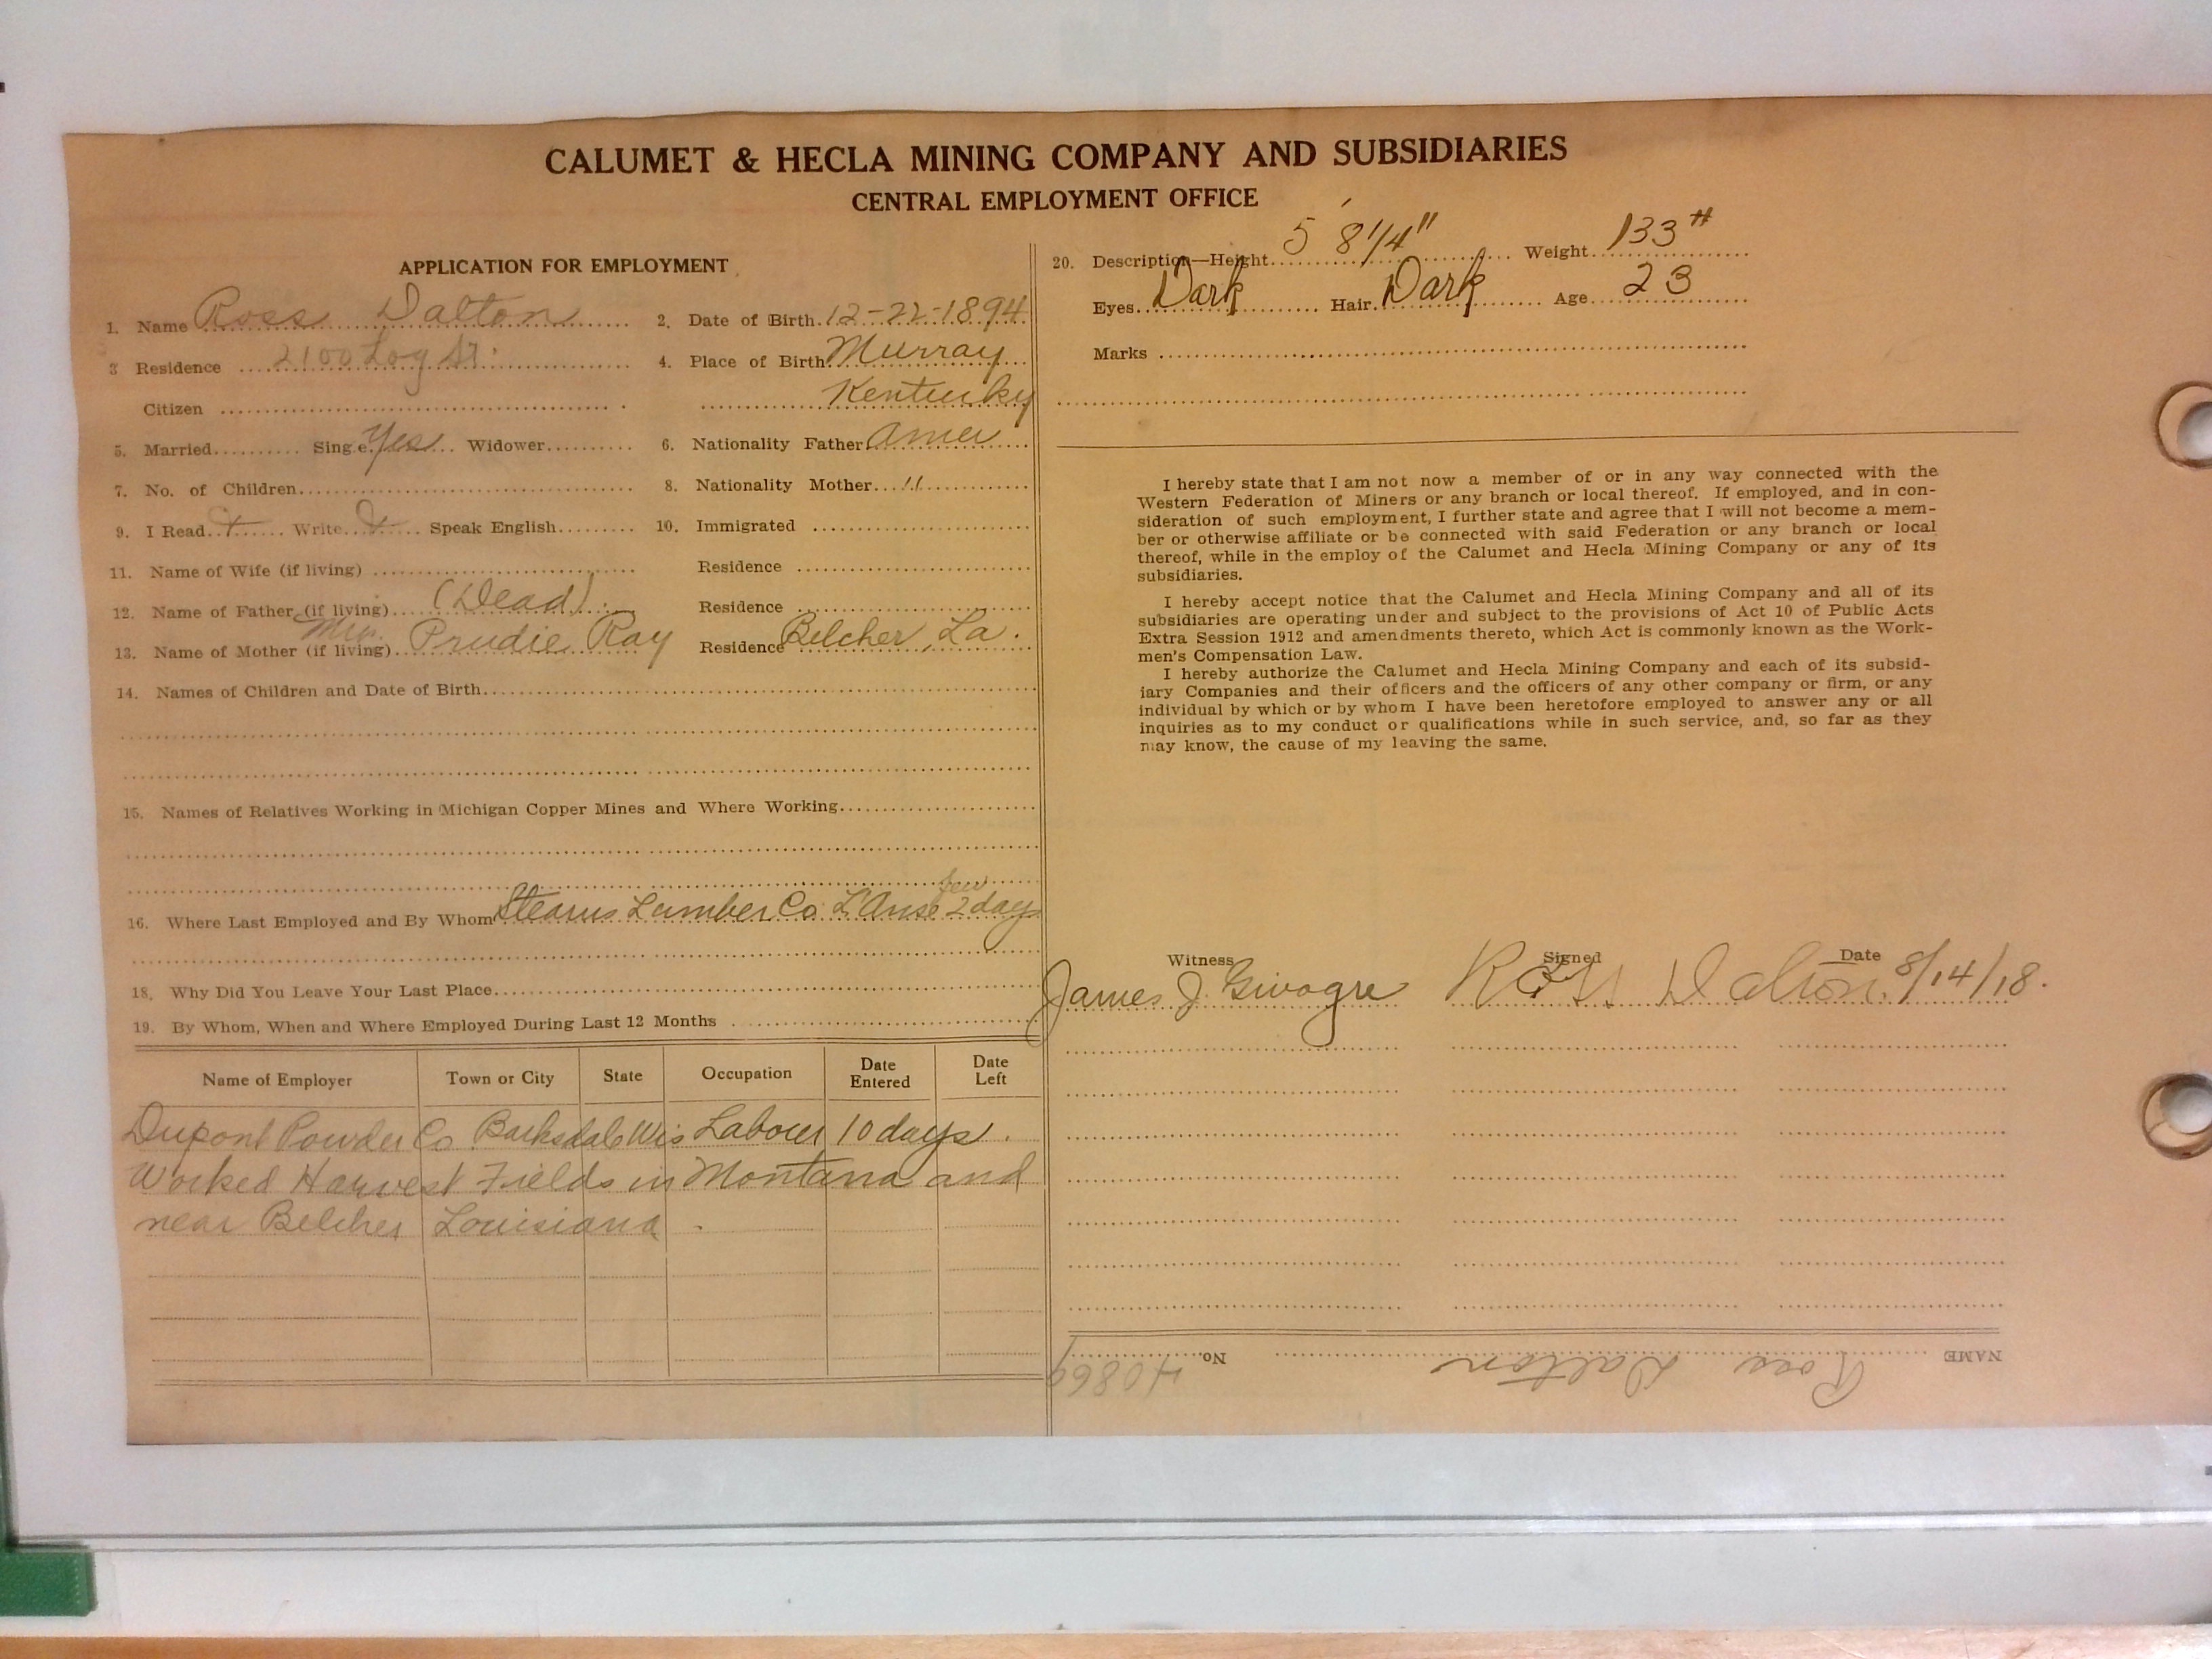 CALUMET & HECLA MINING COMPANY AND SUBSIDIARIES
CENTRAL EMPLOYMENT OFFICE
APPLICATION FOR EMPLOYMENT
1. Name Ross Dalton 2. Date of Birth 12-22-1894
3 Residence 2100 Log St. 4. Place of Birth Murray
Citizen Kentucky
5. Married Single Yes Widower 6. Nationality Father Amer
7. No. of Children 8. Nationality Mother "
9. I Read Write Speak English 10. Immigrated
11. Name of Wife (if living) Residence
12. Name of Father (if living) (Dead) Residence
13. Name of Mother (if living) Mrs. Prudie Ray Residence Belcher, La.
14. Names of Children and Date of Birth
15. Names of Relatives Working in Michigan Copper Mines and Where Working
few
16. Where Last Employed and By Whom Stearns Lumber Co. L'Anse 2 days
18. Why Did You Leave Your Last Place
19. By Whom, When and Where Employed During Last 12 Months
Name of Employer Town or City State Occupation Date Entered Date Left
Dupont Powder Co. Barksdale Wis Labour 10 days.
Worked Harvest Fields in Montana and
near Belcher Louisiana.
20. Description—Height 5' 8 1/4" Weight 133#
Eyes Dark Hair Dark Age 23
Marks
I hereby state that I am not now a member of or in any way connected with the
Western Federation of Miners or any branch or local thereof. If employed, and in con-
sideration of such employment, I further state and agree that I will not become a mem-
ber or otherwise affiliate or be connected with said Federation or any branch or local
thereof, while in the employ of the Calumet and Hecla Mining Company or any of its
subsidiaries.
I hereby accept notice that the Calumet and Hecla Mining Company and all of its
subsidiaries are operating under and subject to the provisions of Act 10 of Public Acts
Extra Session 1912 and amendments thereto, which Act is commonly known as the Work-
men's Compensation Law.
I hereby authorize the Calumet and Hecla Mining Company and each of its subsid-
iary Companies and their officers and the officers of any other company or firm, or any
individual by which or by whom I have been heretofore employed to answer any or all
inquiries as to my conduct or qualifications while in such service, and, so far as they
may know, the cause of my leaving the same.
Witness Signed Date
James J. Ross Dalton 8/14/18.
NAME Ross Dalton No. 40869